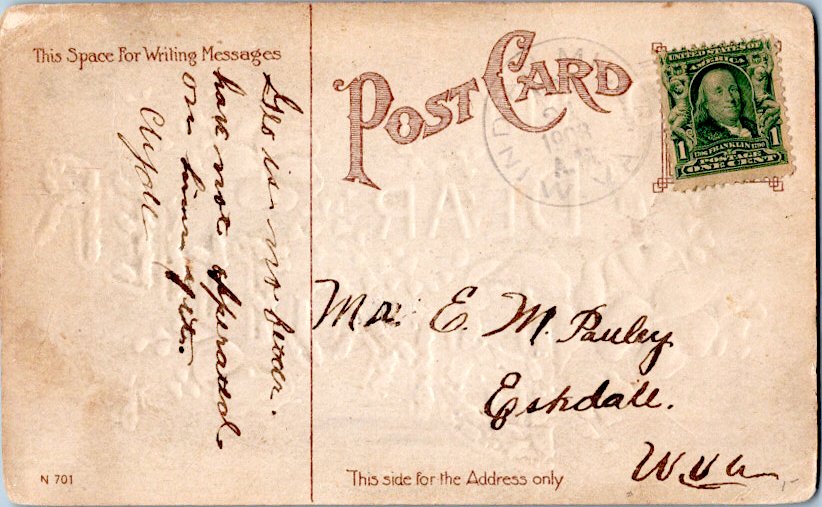 This Space For Writing Messages
Geo is no better.
have not operated
on him yet.
Clyde
POST CARD
1908
UNITED STATES OF
AMERICA
1706 FRANKLIN 1790
1 POSTAGE 1
ONE CENT
Mr. E. M. Pauley
Eskdale.
W Va
N 701
This side for the Address only